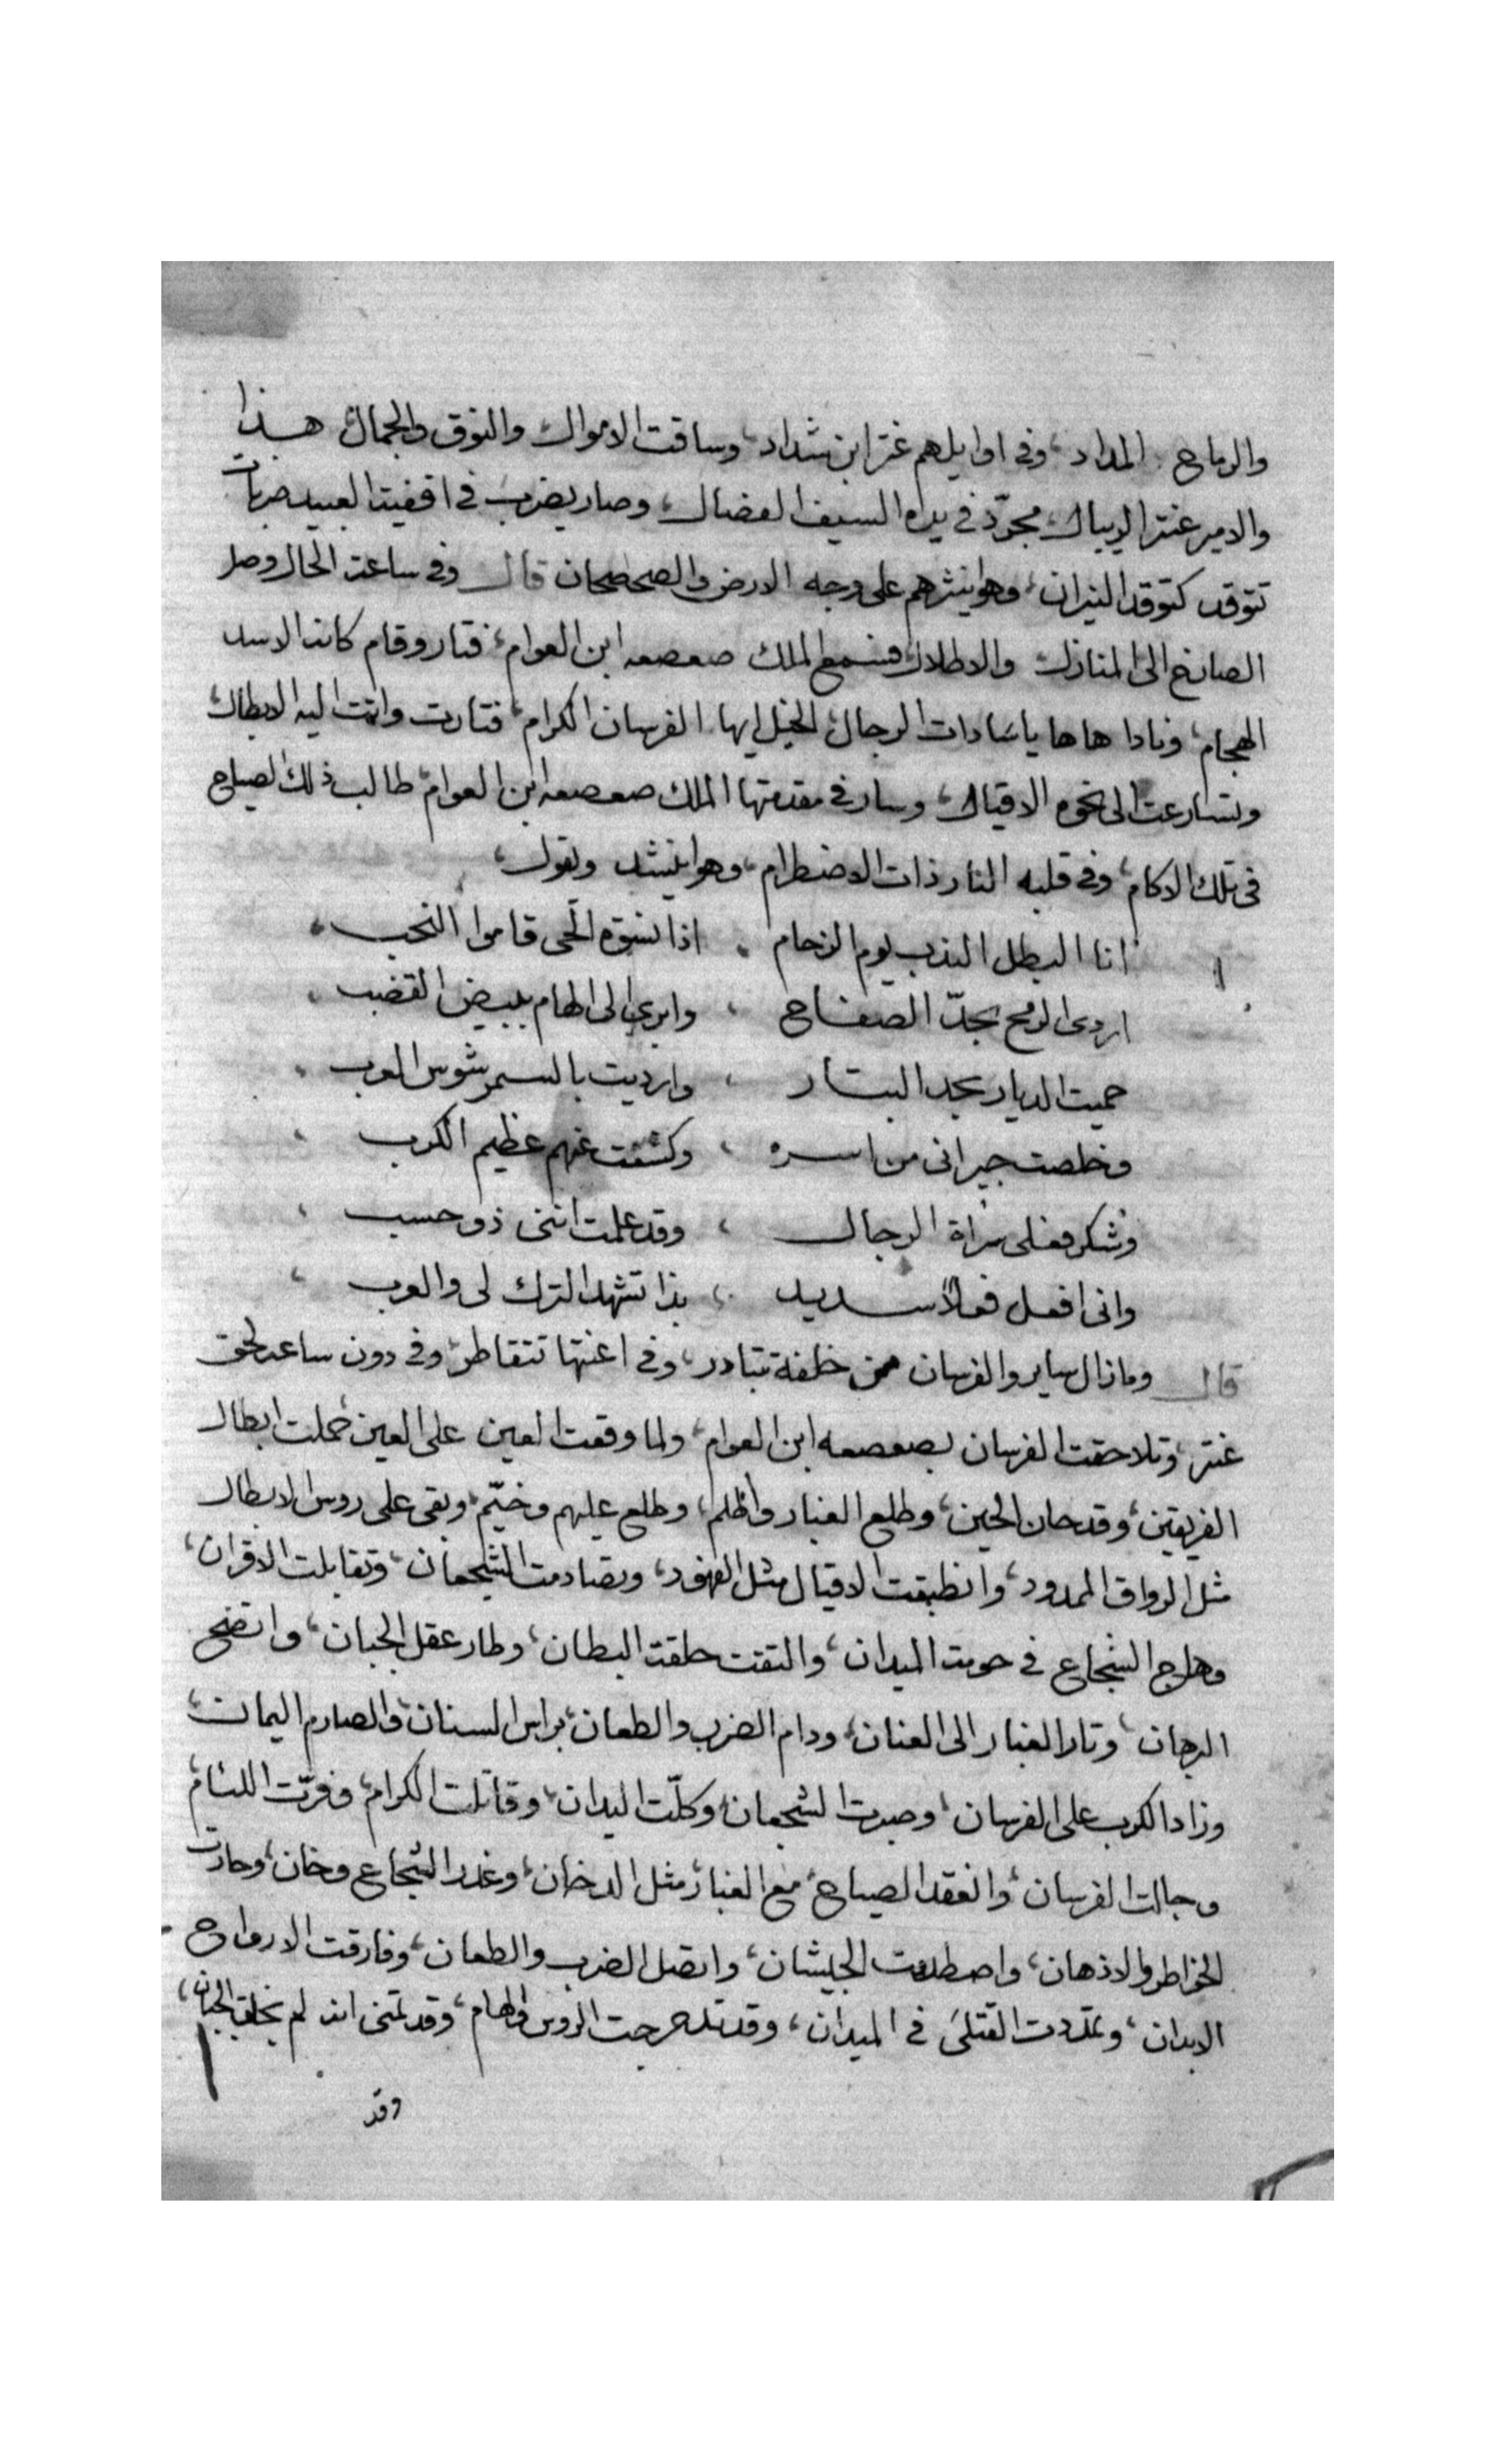 والرماح المداد، وفى اوايلهم عنتر ابن شداد، وساقت الاموال والنوق والجمال، هذا
والامير عنتر الريبال، مجرّد فى يده السيف الفضال، وصار يضرب فى اقفيت العبيد ضربات
تتوقد كتوقد النيران، وهو اينثرهم على وجه الارض والصحصحان قال وفى ساعة الحال وصل
الصايخ الى المنازل والاطلال، فسمع الملك صعصعه ابن العوام، فتار وقام كانه الاسد
الهجام، ونادا هاها ياسادات الرجال، الخيل ايها الفرسان الكرام، فتارت واتت اليه الابطال،
وتسارعت الى نحوه الاقيال، وسار فى مقدمتها الملك صعصعه ابن العوام، طالب ذلك الصياح
فى تلك الاكام، وفى قلبه النار ذات الاضطرام، وهو اينشد ويقول،
انا البطل الندب يوم الزحام . اذا نسوة الحى قاموا النحب .
اردى الرمح بحدّ الصفاح ، وابرى الى الهام ببيض القضب .
حميت الديار بحد البتار ، وارديت بالسمر شوس العرب .
وخلصت جيرانى من اسره ، وكشفت عنهم عظيم الكرب ،
وشكر فعلى سراة الرجال ، وقد علمت اننى ذو حسب ،
وانى افعل فعلاً سديد ، بذا تشهد الترك لى والعرب ،
قال ومازال ساير والفرسان من خلفة تتبادر، وفى اعنتها تتقاطر، وفى دون ساعه لحق
عنتر، وتلاحقت الفرسان بصعصعه ابن العوام، ولما وقعت العين على العين حملت ابطال
الفريقين، وقد حان الحين، وطلع الغبار واظلم، وطلع عليهم وخيّم، وبقى على روس الابطال
مثل الرواق الممدود، وانطبقت الاقيال مثل الفهود، وتصادمت الشجعان، وتقابلت الاقران،
وهاج الشجاع فى حومة الميدان، والتقت حلقة البطان، وطار عقل الجبان، واتضح
البرهان، وتار الغبار الى العنان، ودام الضرب والطعان، براس السنان، والصارم اليمان،
وزاد الكرب على الفرسان، وصبرت الشجعان، وكلّت اليدان، وقاتلت الكرام، وفرّت اللئام،
وجالت الفرسان، وانعقد الصياح، مع الغبار، مثل الدخان، وغدر الشجاع وخان، وحارت
الخواطر والاذهان، واصطدمت الجيشان، واتصل الضرب والطعان، وفارقت الارواح
الابدان، وتمددت القتلى فى الميدان، وقد تدحرجت الروس والهام، وقد تمنى انه لم يخلق الجبان،
وقد